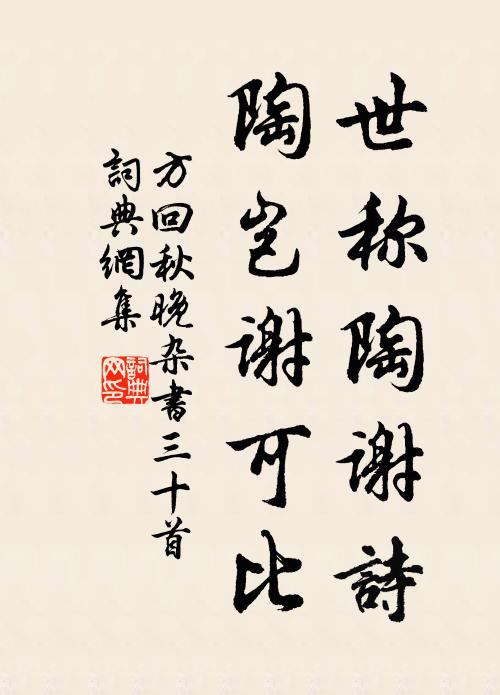 世称陶谢詩
陶岂谢可比
方回秋晚杂書三十首
詞典網集
詞典网印